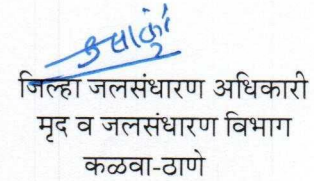 जिल्हा जलसंधारण अधिकारी
मृद व जलसंधारण विभाग
कळवा-ठाणे